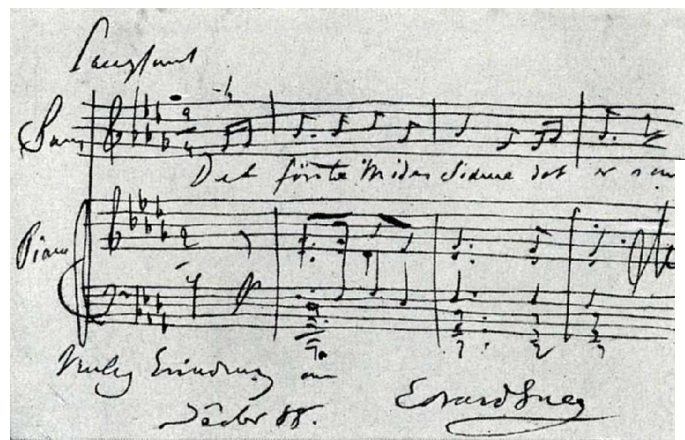 Langsomt
Sang
Det förste Mödes Södme det er som
Piano
Venlig Erindring om
Edvard Grieg
88.